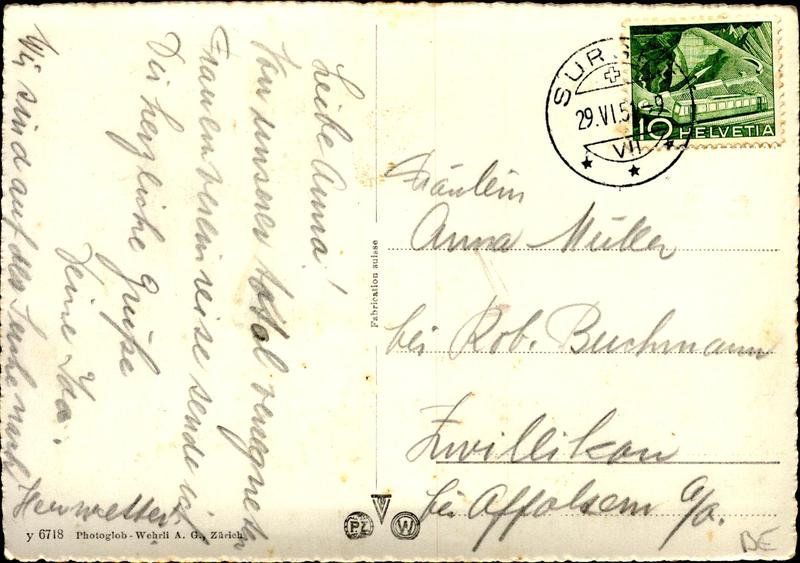 Liebe Anna!
Von unserer total verregneten
Frauenvereinreise sende ich
Dir herzliche Grüsse
Deine Ida.
Wir sind auf der Suche nach
Heuwetter.
Fräulein
Anna Müller
bei Rob. Buchmann
Zwillikon
bei Affoltern a/a.
SURS
29.VI.5 -9
VII
10 HELVETIA
Fabrication suisse
PZ W
y 6718 Photoglob-Wehrli A. G., Zürich
BE